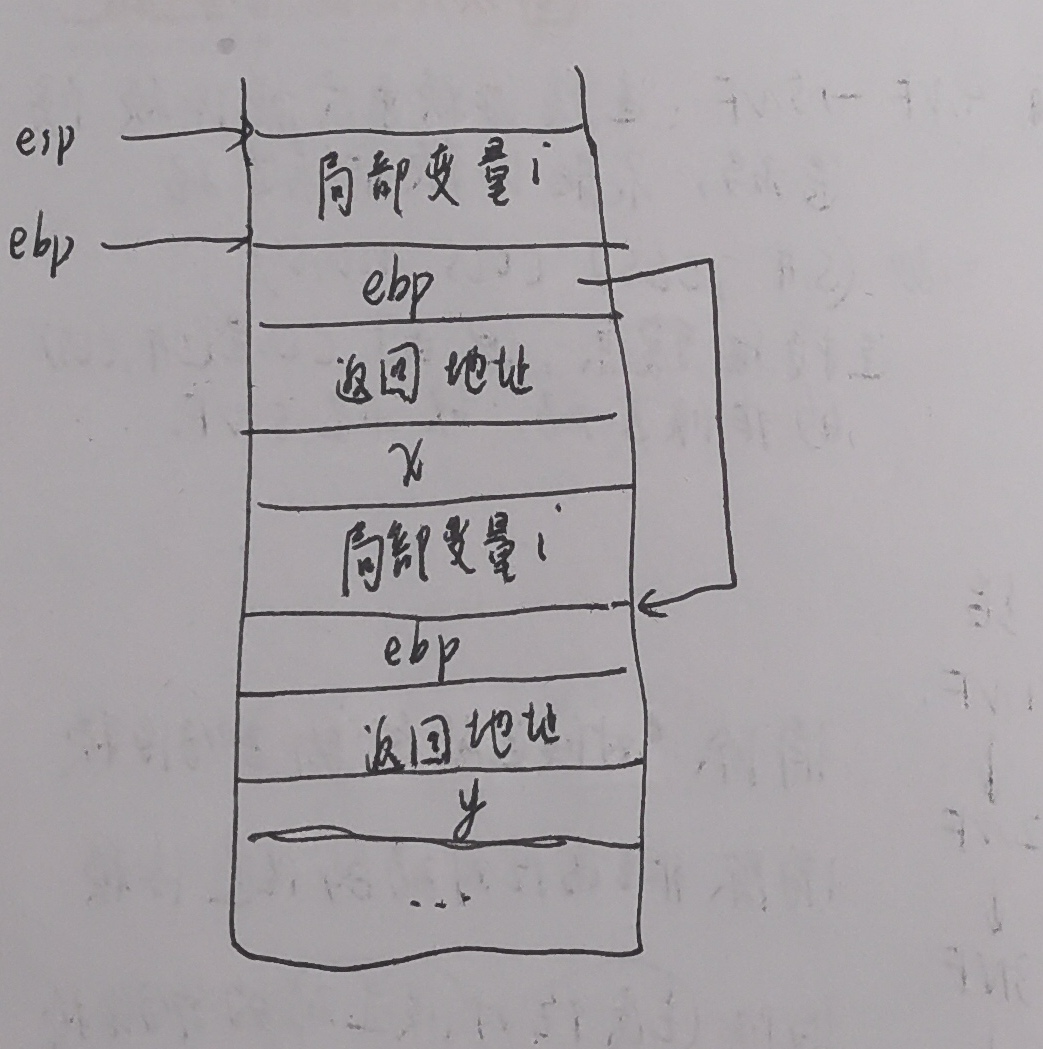 esp
局部变量i
ebp
ebp
返回地址
x
局部变量i
ebp
返回地址
y
...